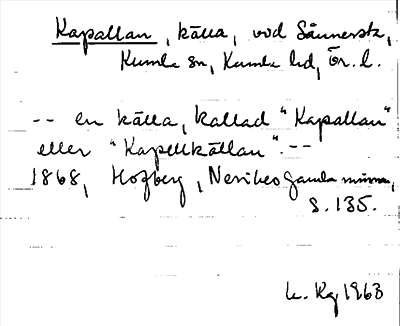 Kapallan, källa, vid Sånnersta,
Kumla sn, Kumla hd, Ör. l.
-- en källa, kallad "Kapallan"
eller "Kapellkällan". --
1868, Hofberg, Nerikes gamla minnen,
s. 135.
1963